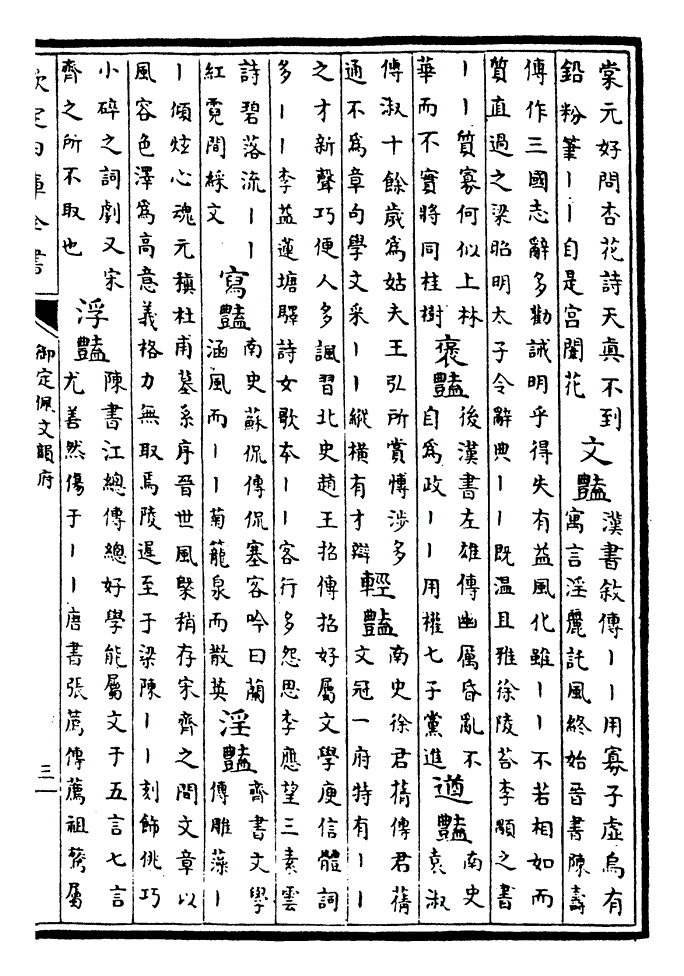 棠元好問杏花詩天真不到
鉛粉筆丨丨自是宫闈花
文豔
漢書敘傳丨丨用寡子虛烏有
寓言淫麗託風終始晉書陳壽
傳作三國志辭多勸誡明乎得失有益風化雖丨丨不若相如而
質直過之梁昭明太子令辭典丨丨既温且雅徐陵荅李顒之書
丨丨質寡何似上林
華而不實將同桂樹
褒豔
後漢書左雄傳幽厲昏亂不
自為政丨丨用權七子黨進
遒豔
南史
袁淑
傳淑十餘歲為姑夫王弘所賞愽涉多
通不為章句學文采丨丨縱横有才辯
輕豔
南史徐君蒨傳君蒨
文冠一府特有丨丨
之才新聲巧便人多諷習北史趙王招傳招好屬文學庾信體詞
多丨丨李益蓮塘驛詩女歌本丨丨客行多怨思李應望三素雲
詩碧落流丨丨
紅霓間綵文
寫豔
南史蘇侃傳侃塞客吟曰蘭
涵風而丨丨菊籠泉而散英
淫豔
齊書文學
傳雕藻丨
丨傾炫心魂元稹杜甫墓系序晉世風槩稍存宋齊之間文章以
風容色澤為高意義格力無取焉陵遲至于梁陳丨丨刻飾佻巧
小碎之詞劇又宋
齊之所不取也
浮豔
陳書江總傳總好學能屬文于五言七言
尤善然傷于丨丨唐書張薦傳薦祖鷟屬
欽定四庫全書
御定佩文韻府
三